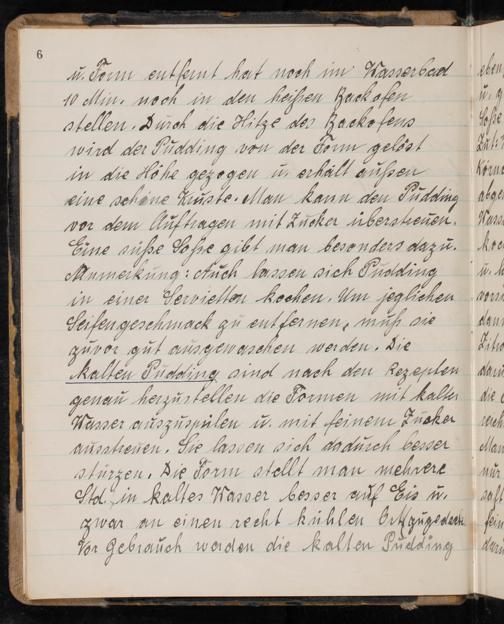 6
u. Form entfernt hat noch im Wasserbad
10 Min. noch in den heißen Backofen
stellen. Durch die Hitze des Backofens
wird der Pudding von der Form gelöst
in die Höhe gezogen u. erhält außen
eine schöne Kruste. Man kann den Pudding
vor dem Auftragen mit Zucker überstreuen.
Eine süße Soße gibt man besonders dazu.
Anmerkung: Auch lassen sich Pudding
in einer Servietten kochen. Um jeglichen
Seifengeschmack zu entfernen, muß sie
zuvor gut ausgewaschen werden. Die
kalten Pudding sind nach den Rezepten
genau herzustellen die Formen mit kalten
Wasser auszuspülen u. mit feinem Zucker
ausstreuen. Sie lassen sich dadurch besser
stürzen. Die Form stellt man mehrere
Std. in kaltes Wasser besser auf Eis u.
zwar an einen recht kühlen Ort zugedeckt.
Vor Gebrauch werden die kalten Pudding